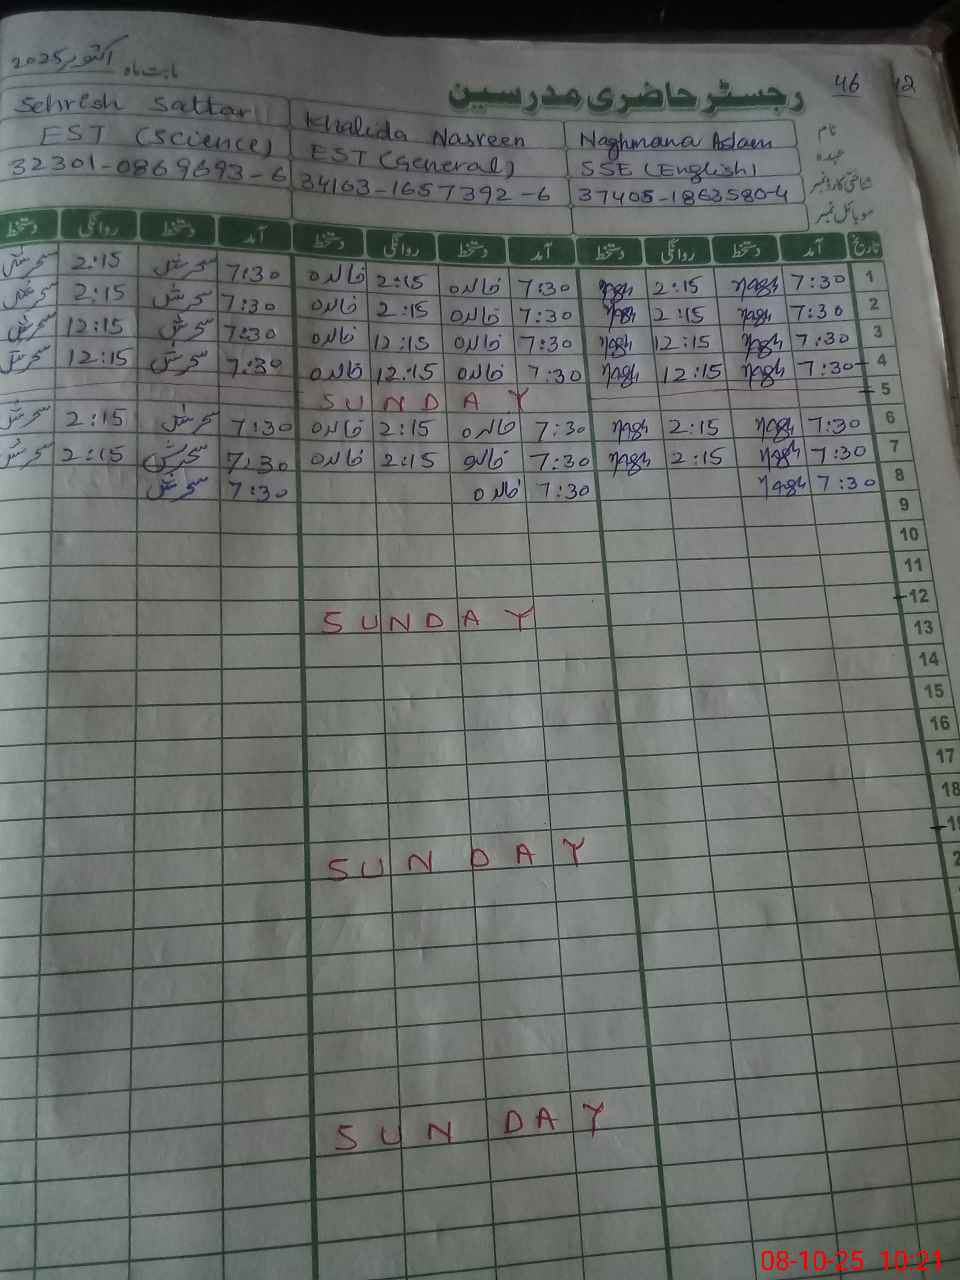 46 12
رجسٹر حاضری مدرسین
بابت ماہ اکتوبر 2025
نام Naghmana Aslam Khalida Nasreen Sehresh Sattar
عہدہ SSE (English) EST (General) EST (Science)
شناختی کارڈ نمبر 37405-1863580-4 34103-1657392-6 32301-0869693-6
موبائل نمبر
تاریخ آمد دستخط روانگی دستخط آمد دستخط روانگی دستخط آمد دستخط روانگی دستخط
1 7:30 Nagh 2:15 Nagh 7:30 خالدہ 2:15 خالدہ 7:30 سحرش 2:15 سحرش
2 7:30 Nagh 2:15 Nagh 7:30 خالدہ 2:15 خالدہ 7:30 سحرش 2:15 سحرش
3 7:30 Nagh 12:15 Nagh 7:30 خالدہ 12:15 خالدہ 7:30 سحرش 12:15 سحرش
4 7:30 Nagh 12:15 Nagh 7:30 خالدہ 12:15 خالدہ 7:30 سحرش 12:15 سحرش
5 SUNDAY
6 7:30 Nagh 2:15 Nagh 7:30 خالدہ 2:15 خالدہ 7:30 سحرش 2:15 سحرش
7 7:30 Nagh 2:15 Nagh 7:30 خالدہ 2:15 خالدہ 7:30 سحرش 2:15 سحرش
8 7:30 Nagh 7:30 خالدہ 7:30 سحرش
9
10
11
12 SUNDAY
13
14
15
16
17
18
19 SUNDAY
2
SUNDAY
08-10-25 10:21